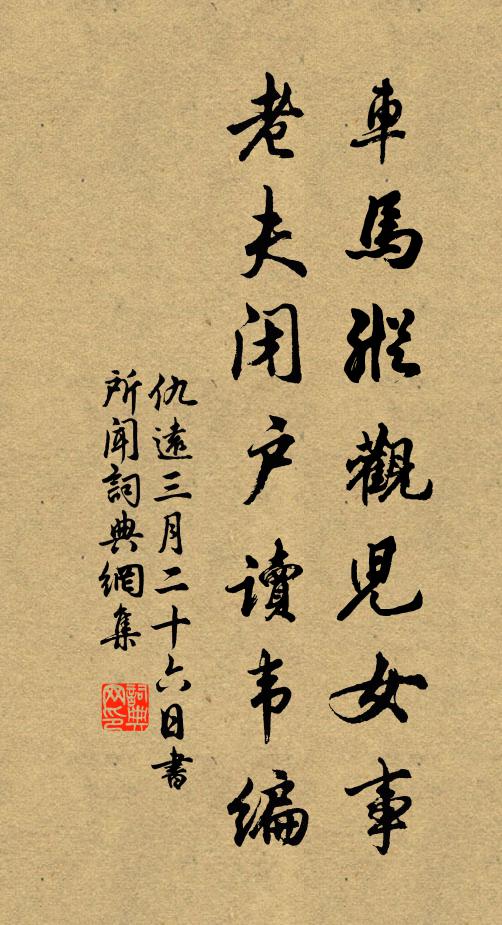 車馬縱觀兒女事
老夫闭户讀韦編
仇遠三月二十六日書
所聞詞典網集
詞典
网印